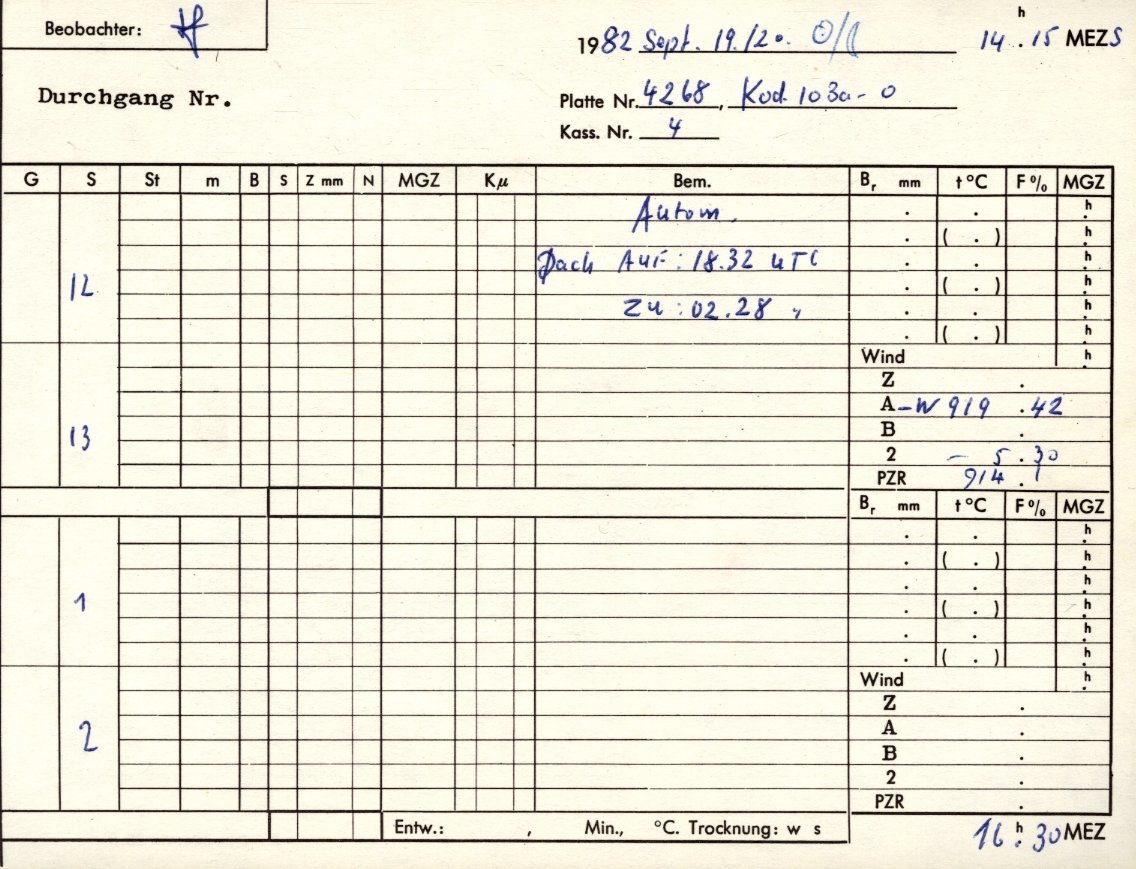 Beobachter: Hf
1982 Sept. 19./20. 14 h . 15 MEZS
Durchgang Nr.
Platte Nr. 4268, Kod. 103a-0
Kass. Nr. 4
G S St m B S Z mm N MGZ Kμ Bem. Br mm t °C F % MGZ
Autom. . . h
. ( . ) h
12 Dach AUF: 18.32 UTC . . h
. ( . ) h
Zu : 02.28 " . . h
. ( . ) h
Wind h
Z .
A -W 919 .42
13 B .
2 - 5 . 30
PZR 914 . 1
Br mm t °C F % MGZ
. . h
. ( . ) h
1 . . h
. ( . ) h
. . h
. ( . ) h
Wind h
Z .
2 A .
B .
2 .
PZR .
Entw.: , Min., °C. Trocknung: w s
16 h . 30 MEZ